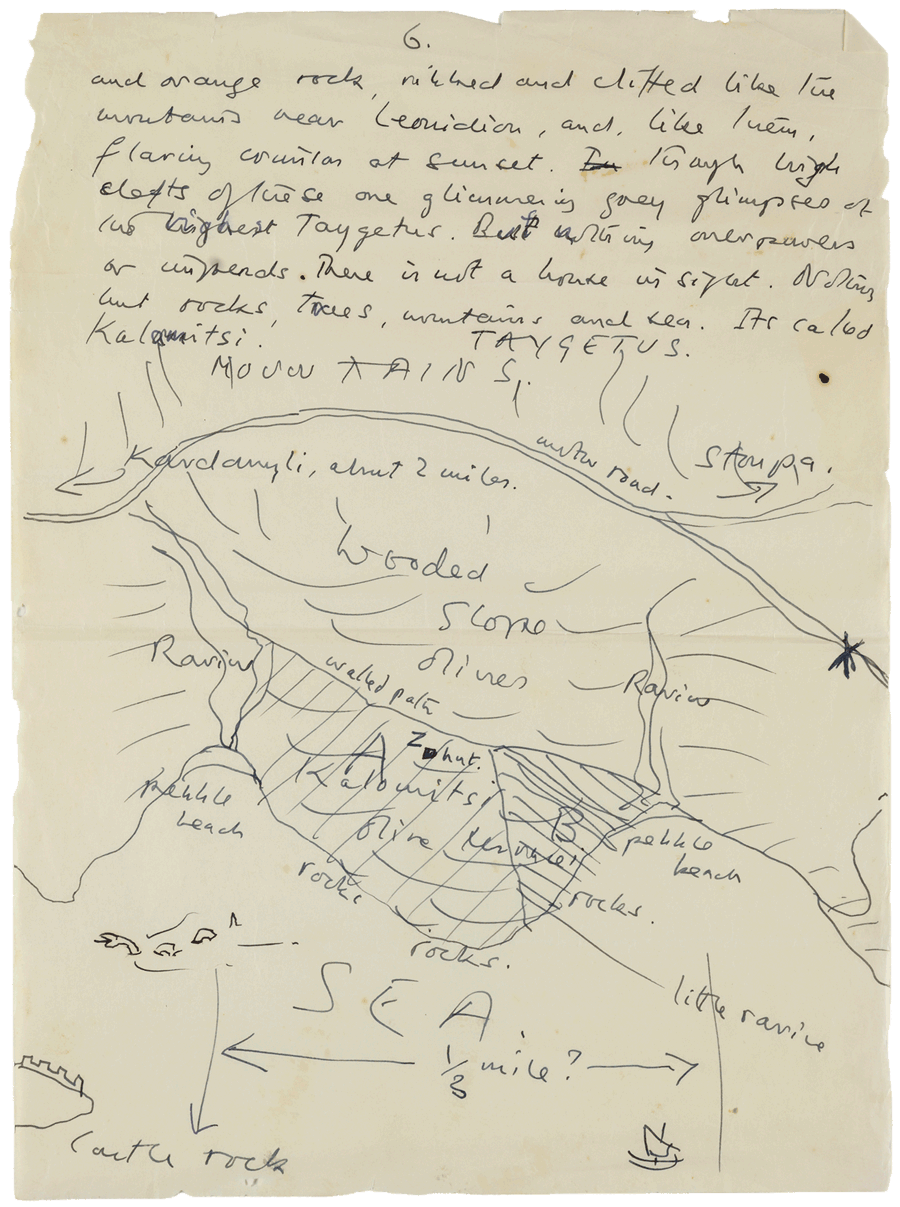 6.
and orange rock, ribbed and clifted like the
mountains near Leonidion, and, like them,
flaring  at sunset. In Through high
clefts of these one glimmering grey glimpses of
the highest Taygetus. But nothing overpowers
or impends. There is not a house in sight. Nothing
but rocks, trees, mountains and sea. Its called
Kalamitsi.
TAYGETUS.
MOUNTAINS,
Kardamyli, about 2 miles.
motor road.
Stoupa.
Wooded
Slope
Olives
Ravine
walled path
Ravine
A
Z hut.
Kalamitsi
B.
pebble
beach
olive terraces
pebble
beach
rocks
rocks.
rocks.
SEA.
little ravine
1/3 mile?
Castle rock